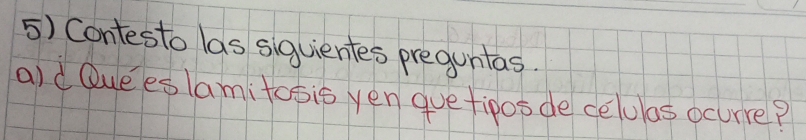 5) Contesto las siguientes preguntas.
a) ¿Qué es la mitosis y en que tipos de celulas ocurre?